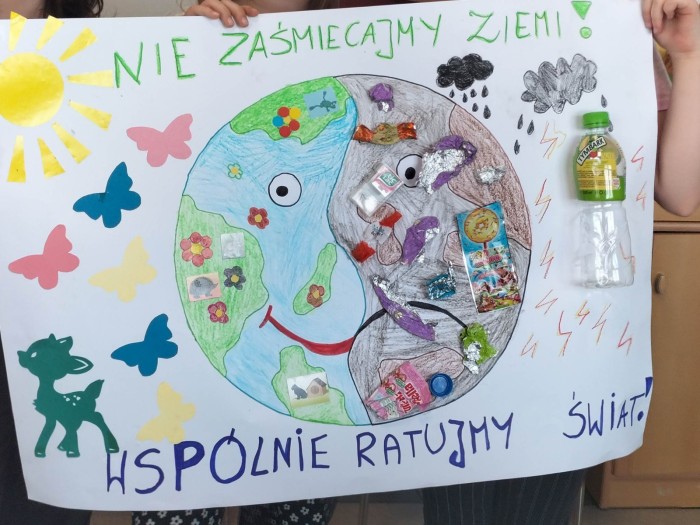 NIE ZAŚMIECAJMY ZIEMI!
TYMBARK
WSPÓLNIE RATUJMY ŚWIAT!